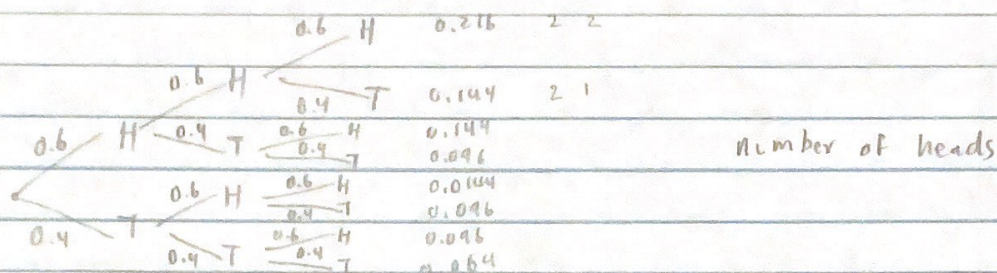 0.6 H 0.216 2 2
0.6 H
0.4 T 0.144 2 1
0.6 H 0.4 T 0.6 H 0.144
0.4 T 0.096
number of heads
0.6 H 0.6 H 0.0144
0.4 T 0.096
0.4 T
0.4 T 0.6 H 0.096
0.4 T 0.064